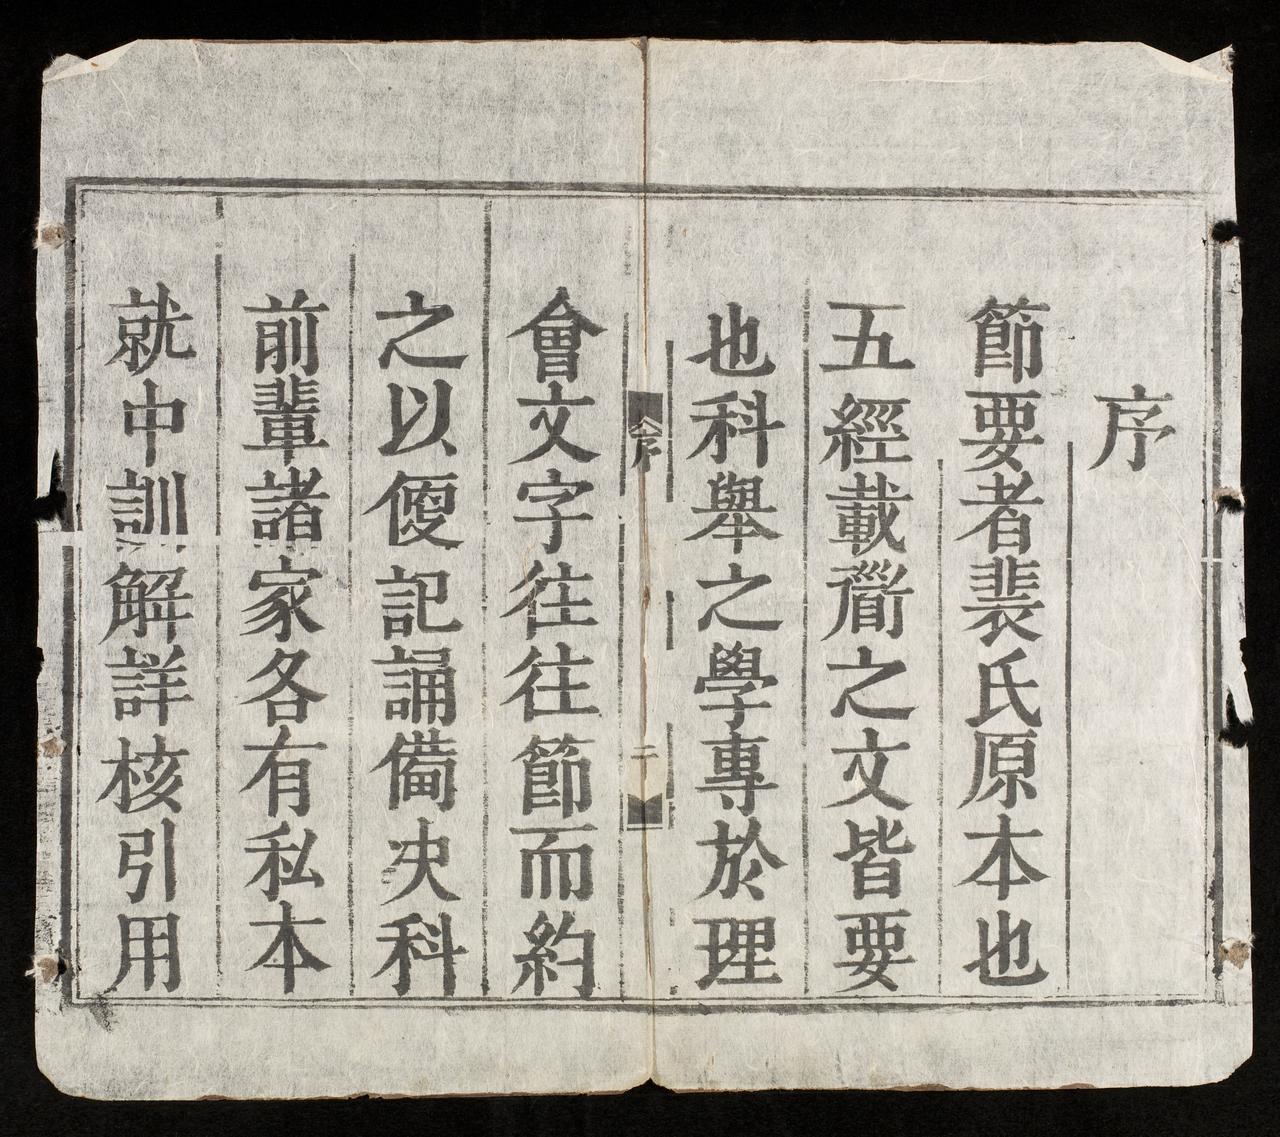 序
節要者裴氏原本也
五經載道之文皆要
也科舉之學專於理
序 二
會文字往往節而約
之以便記誦備决科
前輩諸家各有私本
就中訓解詳核引用